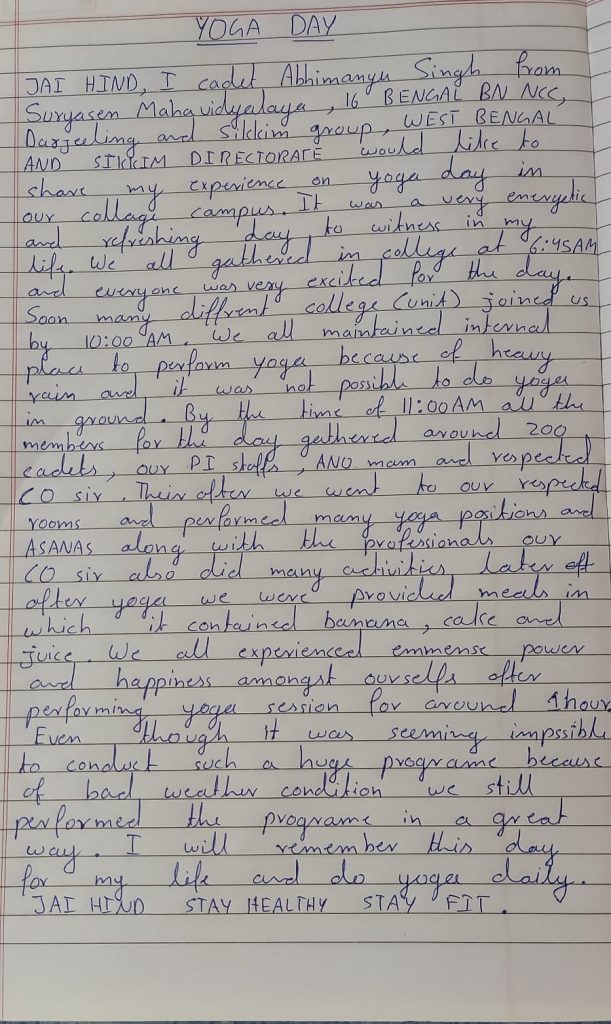 YOGA DAY
JAI HIND, I cadet Abhimanyu Singh from
Suryasen Mahavidyalaya, 16 BENGAL BN NCC,
Darjeeling and Sikkim group, WEST BENGAL
AND SIKKIM DIRECTORATE would like to
share my experience on yoga day in
our collage campus. It was a very energetic
and refreshing day to witness in my
life. We all gathered in college at 6:45AM
and everyone was very excited for the day.
Soon many diffrent college (unit) joined us
by 10:00 AM. We all maintained internal
place to perform yoga because of heavy
rain and it was not possible to do yoga
in ground. By the time of 11:00AM all the
members for the day gathered around 200
cadets, our PI staffs, ANO mam and respected
CO sir. Their after we went to our respected
rooms and performed many yoga positions and
ASANAS along with the professionals our
CO sir also did many activities later
after yoga we were provided meals in
which it contained banana, cake and
juice. We all experienced emmense power
and happiness amongst ourselfs after
performing yoga session for around 1hour
Even though it was seeming impssible
to conduct such a huge programe because
of bad weather condition we still
performed the programe in a great
way. I will remember this day
for my life and do yoga daily.
JAI HIND STAY HEALTHY STAY FIT.